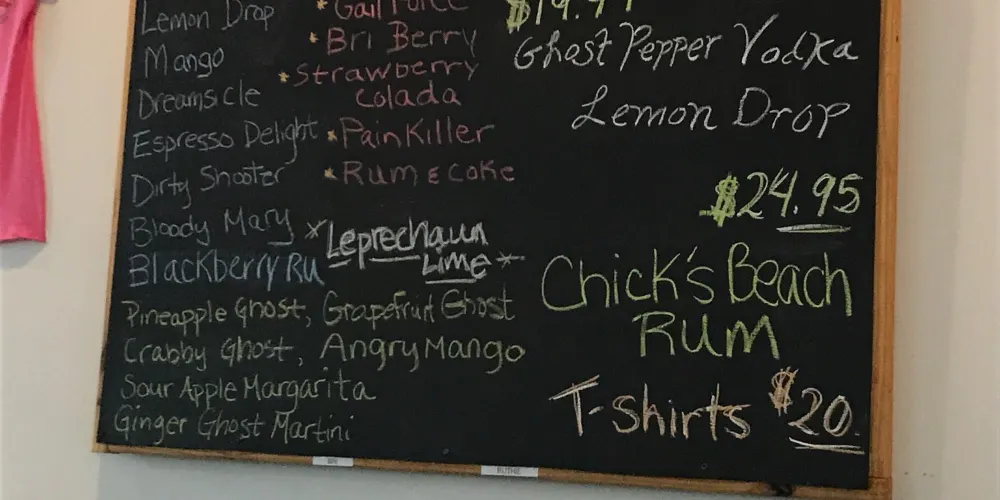 Lemon Drop
Mango
Dreamsicle
Espresso Delight
Dirty Shooter
Bloody Mary
Blackberry Ru
* Gail Force
* Bri Berry
* Strawberry
Colada
* PainKiller
* Rum & Coke
* Leprechaun
Lime *
Pineapple Ghost, Grapefruit Ghost
Crabby Ghost, Angry Mango
Sour Apple Margarita
Ginger Ghost Martini
$19.99
Ghost Pepper Vodka
Lemon Drop
$24.95
Chick's Beach
Rum
T-Shirts $20.
RUTHIE